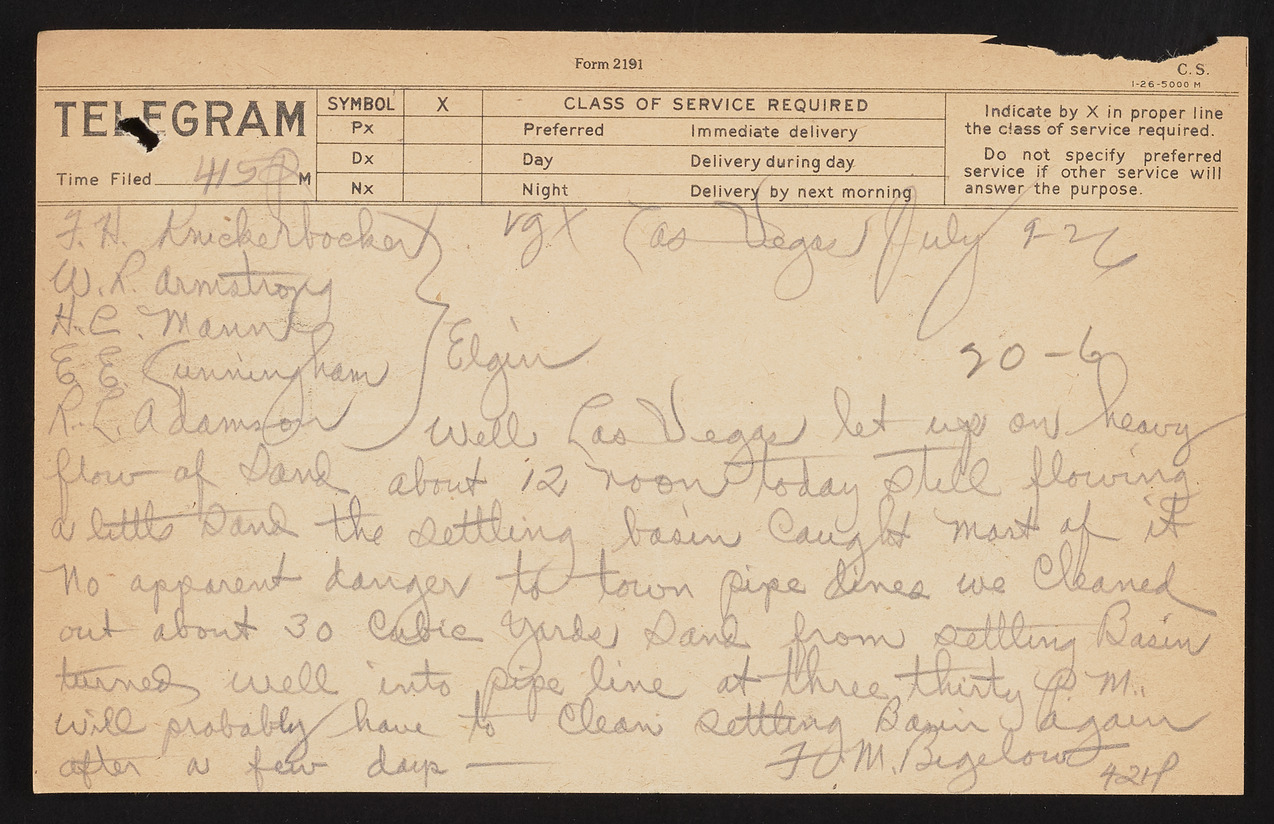 Form 2191
C. S.
1-26-5000 M
TELEGRAM
SYMBOL X CLASS OF SERVICE REQUIRED
Px Preferred Immediate delivery
Dx Day Delivery during day
Nx Night Delivery by next morning
Indicate by X in proper line
the class of service required.
Do not specify preferred
service if other service will
answer the purpose.
Time Filed 415 P M
F. H. Knickerbocker X vgx Las Vegas July 9-26
W. R. Armstrong
H. C. Mann
E. E. Cunningham
Elgin
20-6
R. L. Adamson Well Las Vegas let up on heavy
flow of Sand about 12 noon today still flowing
a little Sand the settling basin Caught most of it
No apparent danger to town pipe lines we Cleaned
out about 30 Cubic Yards Sand from settling Basin
turned well into pipe line at three thirty P M.
will probably have to Clean settling Basin again
after a few days —
F. M. Bigelow
421P